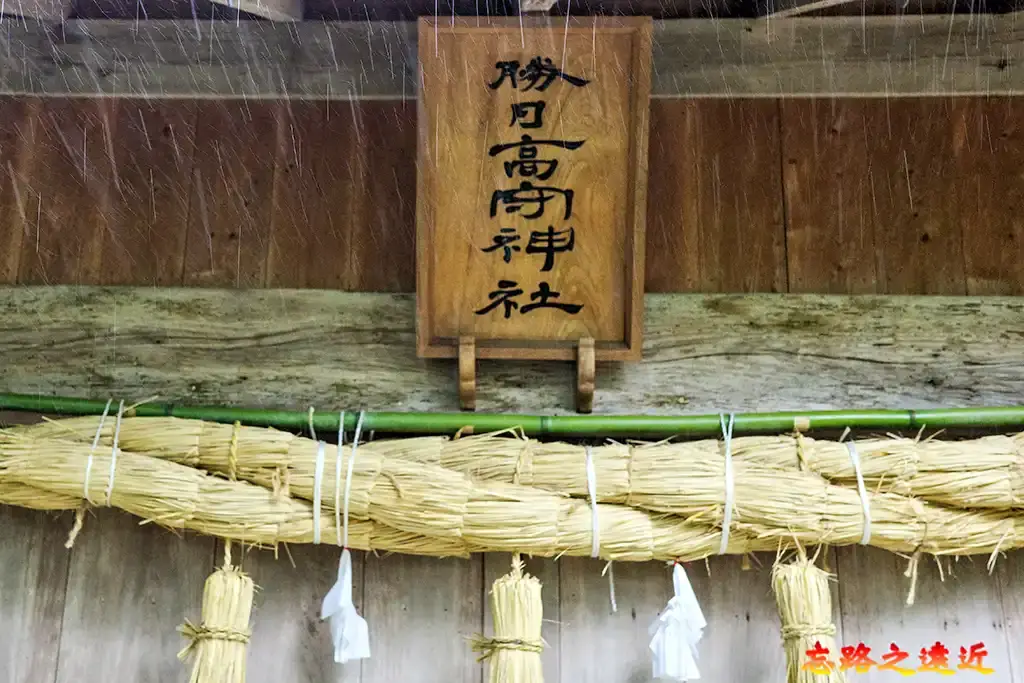 勝日高守神社
忘路之遠近